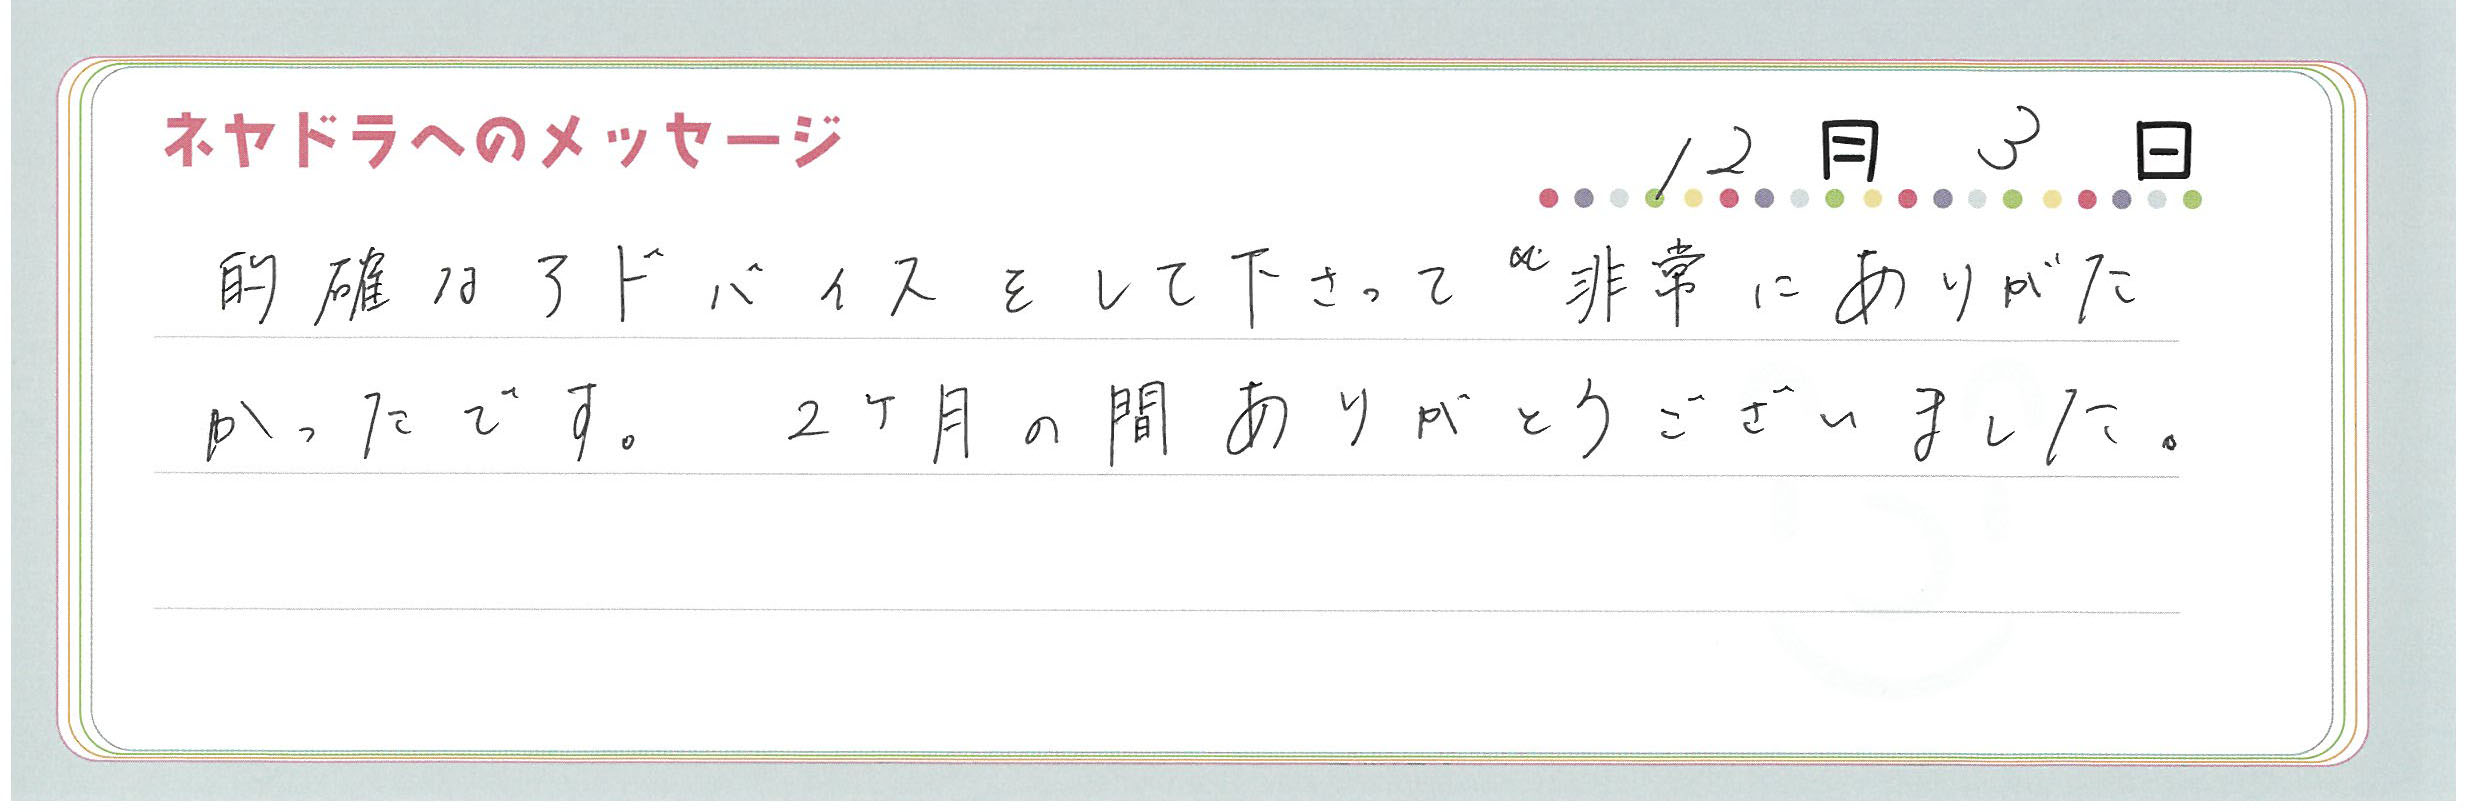 ネヤドラへのメッセージ
12月3日
的確なアドバイスをして下さって非常にありがた
かったです。 2ケ月の間ありがとうございました。